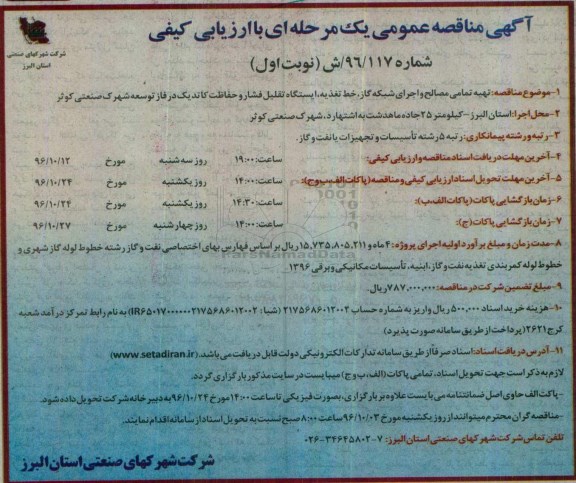 آگهی مناقصه عمومی یک مرحله ای با ارزیابی کیفی
شماره ۹۶/۱۱۷/ش (نوبت اول)
شرکت شهرکهای صنعتی
استان البرز
۱-موضوع مناقصه: تهیه تمامی مصالح و اجرای شبکه گاز، خط تغذیه، ایستگاه تقلیل فشار و حفاظت کاتدیک در فاز توسعه شهرک صنعتی کوثر
۲-محل اجرا: استان البرز - کیلومتر ۲۵ جاده ماهدشت به اشتهارد، شهرک صنعتی کوثر
۳-رتبه و رشته پیمانکاری: رتبه ۵ رشته تأسیسات و تجهیزات یا نفت و گاز.
۴-آخرین مهلت دریافت اسناد مناقصه و ارزیابی کیفی: ساعت: ۱۹:۰۰ روز سه شنبه مورخ ۹۶/۱۰/۱۲
۵-آخرین مهلت تحویل اسناد ارزیابی کیفی و مناقصه (پاکات الف، ب و ج): ساعت: ۱۴:۰۰ روز یکشنبه مورخ ۹۶/۱۰/۲۴
۶-زمان بازگشایی پاکات (پاکات الف، ب): ساعت: ۱۴:۳۰ روز یکشنبه مورخ ۹۶/۱۰/۲۴
۷-زمان بازگشایی پاکات (ج): ساعت: ۱۴:۰۰ روز چهارشنبه مورخ ۹۶/۱۰/۲۷
۸-مدت زمان و مبلغ برآورد اولیه اجرای پروژه: ۴ ماه و ۱۵,۷۳۵,۸۰۵,۲۱۱ ریال بر اساس فهارس بهای اختصاصی نفت و گاز رشته خطوط لوله گاز شهری و
خطوط لوله کمربندی تغذیه نفت و گاز، ابنیه، تأسیسات مکانیکی و برقی ۱۳۹۶
۹-مبلغ تضمین شرکت در مناقصه: ۷۸۷,۰۰۰,۰۰۰ ریال.
۱۰-هزینه خرید اسناد ۵۰۰,۰۰۰ ریال واریز به شماره حساب ۲۱۷۵۶۸۶۰۱۲۰۰۲ (شبا: IR650170000000217568601200۲) به نام رابط تمرکز درآمد شعبه
کرج ۲۶۲۱ (پرداخت از طریق سامانه صورت پذیرد)
۱۱-آدرس دریافت اسناد: اسناد صرفاً از طریق سامانه تدارکات الکترونیکی دولت قابل دریافت می باشد. (www.setadiran.ir)
لازم به ذکر است جهت تحویل اسناد، تمامی پاکات (الف، ب و ج) میبایست در سایت مذکور بارگزاری گردد.
-پاکت الف حاوی اصل ضمانتنامه می بایست علاوه بر بارگزاری، بصورت فیزیکی تا ساعت ۱۴:۰۰ مورخ ۹۶/۱۰/۲۴ به دبیرخانه شرکت تحویل داده شود.
-مناقصه گران محترم میتوانند از روز یکشنبه مورخ ۹۶/۱۰/۰۳ ساعت ۸:۰۰ صبح نسبت به تحویل اسناد از سامانه اقدام نمایند.
تلفن تماس شرکت شهرکهای صنعتی استان البرز: ۷-۳۴۶۴۵۸۰۲-۰۲۶
شرکت شهرکهای صنعتی استان البرز